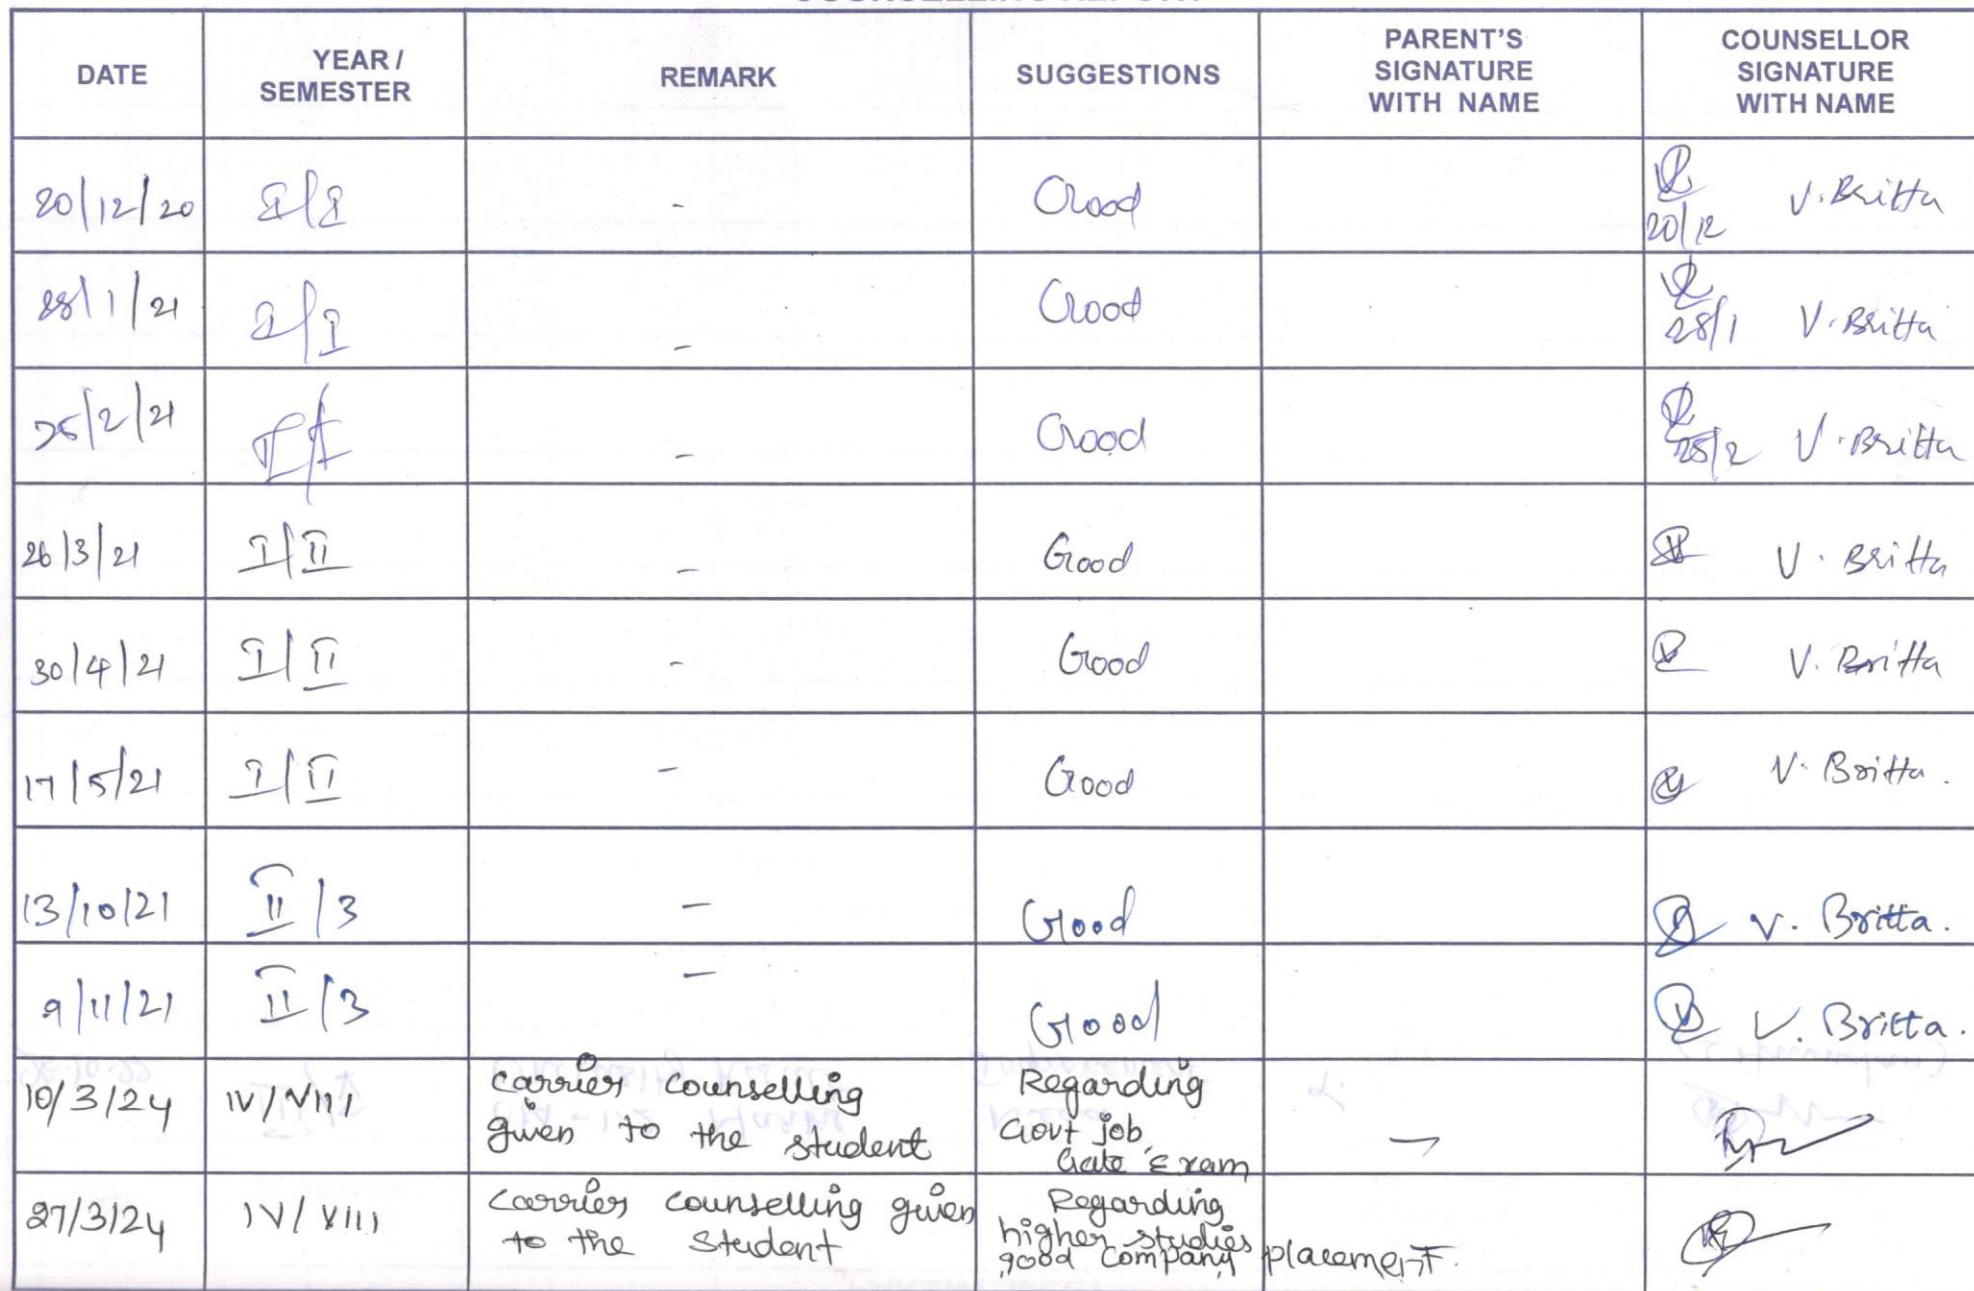 COUNSELLING REPORT
DATE YEAR / SEMESTER REMARK SUGGESTIONS PARENT'S SIGNATURE WITH NAME COUNSELLOR SIGNATURE WITH NAME
20/12/20 I/I - Good 20/12 V. Britta
28/1/21 I/I - Good 28/1 V. Britta
25/2/21 I/I - Good 25/2 V. Britta
26/3/21 I/II - Good V. Britta
30/4/21 I/II - Good V. Britta
17/5/21 I/II - Good V. Britta.
13/10/21 II/3 - Good V. Britta.
9/11/21 II/3 - Good V. Britta.
10/3/24 IV/VIII carrier counselling given to the student Regarding Govt job, Gate Exam -
27/3/24 IV/VIII carrier counselling given to the student Regarding higher studies good company placement.